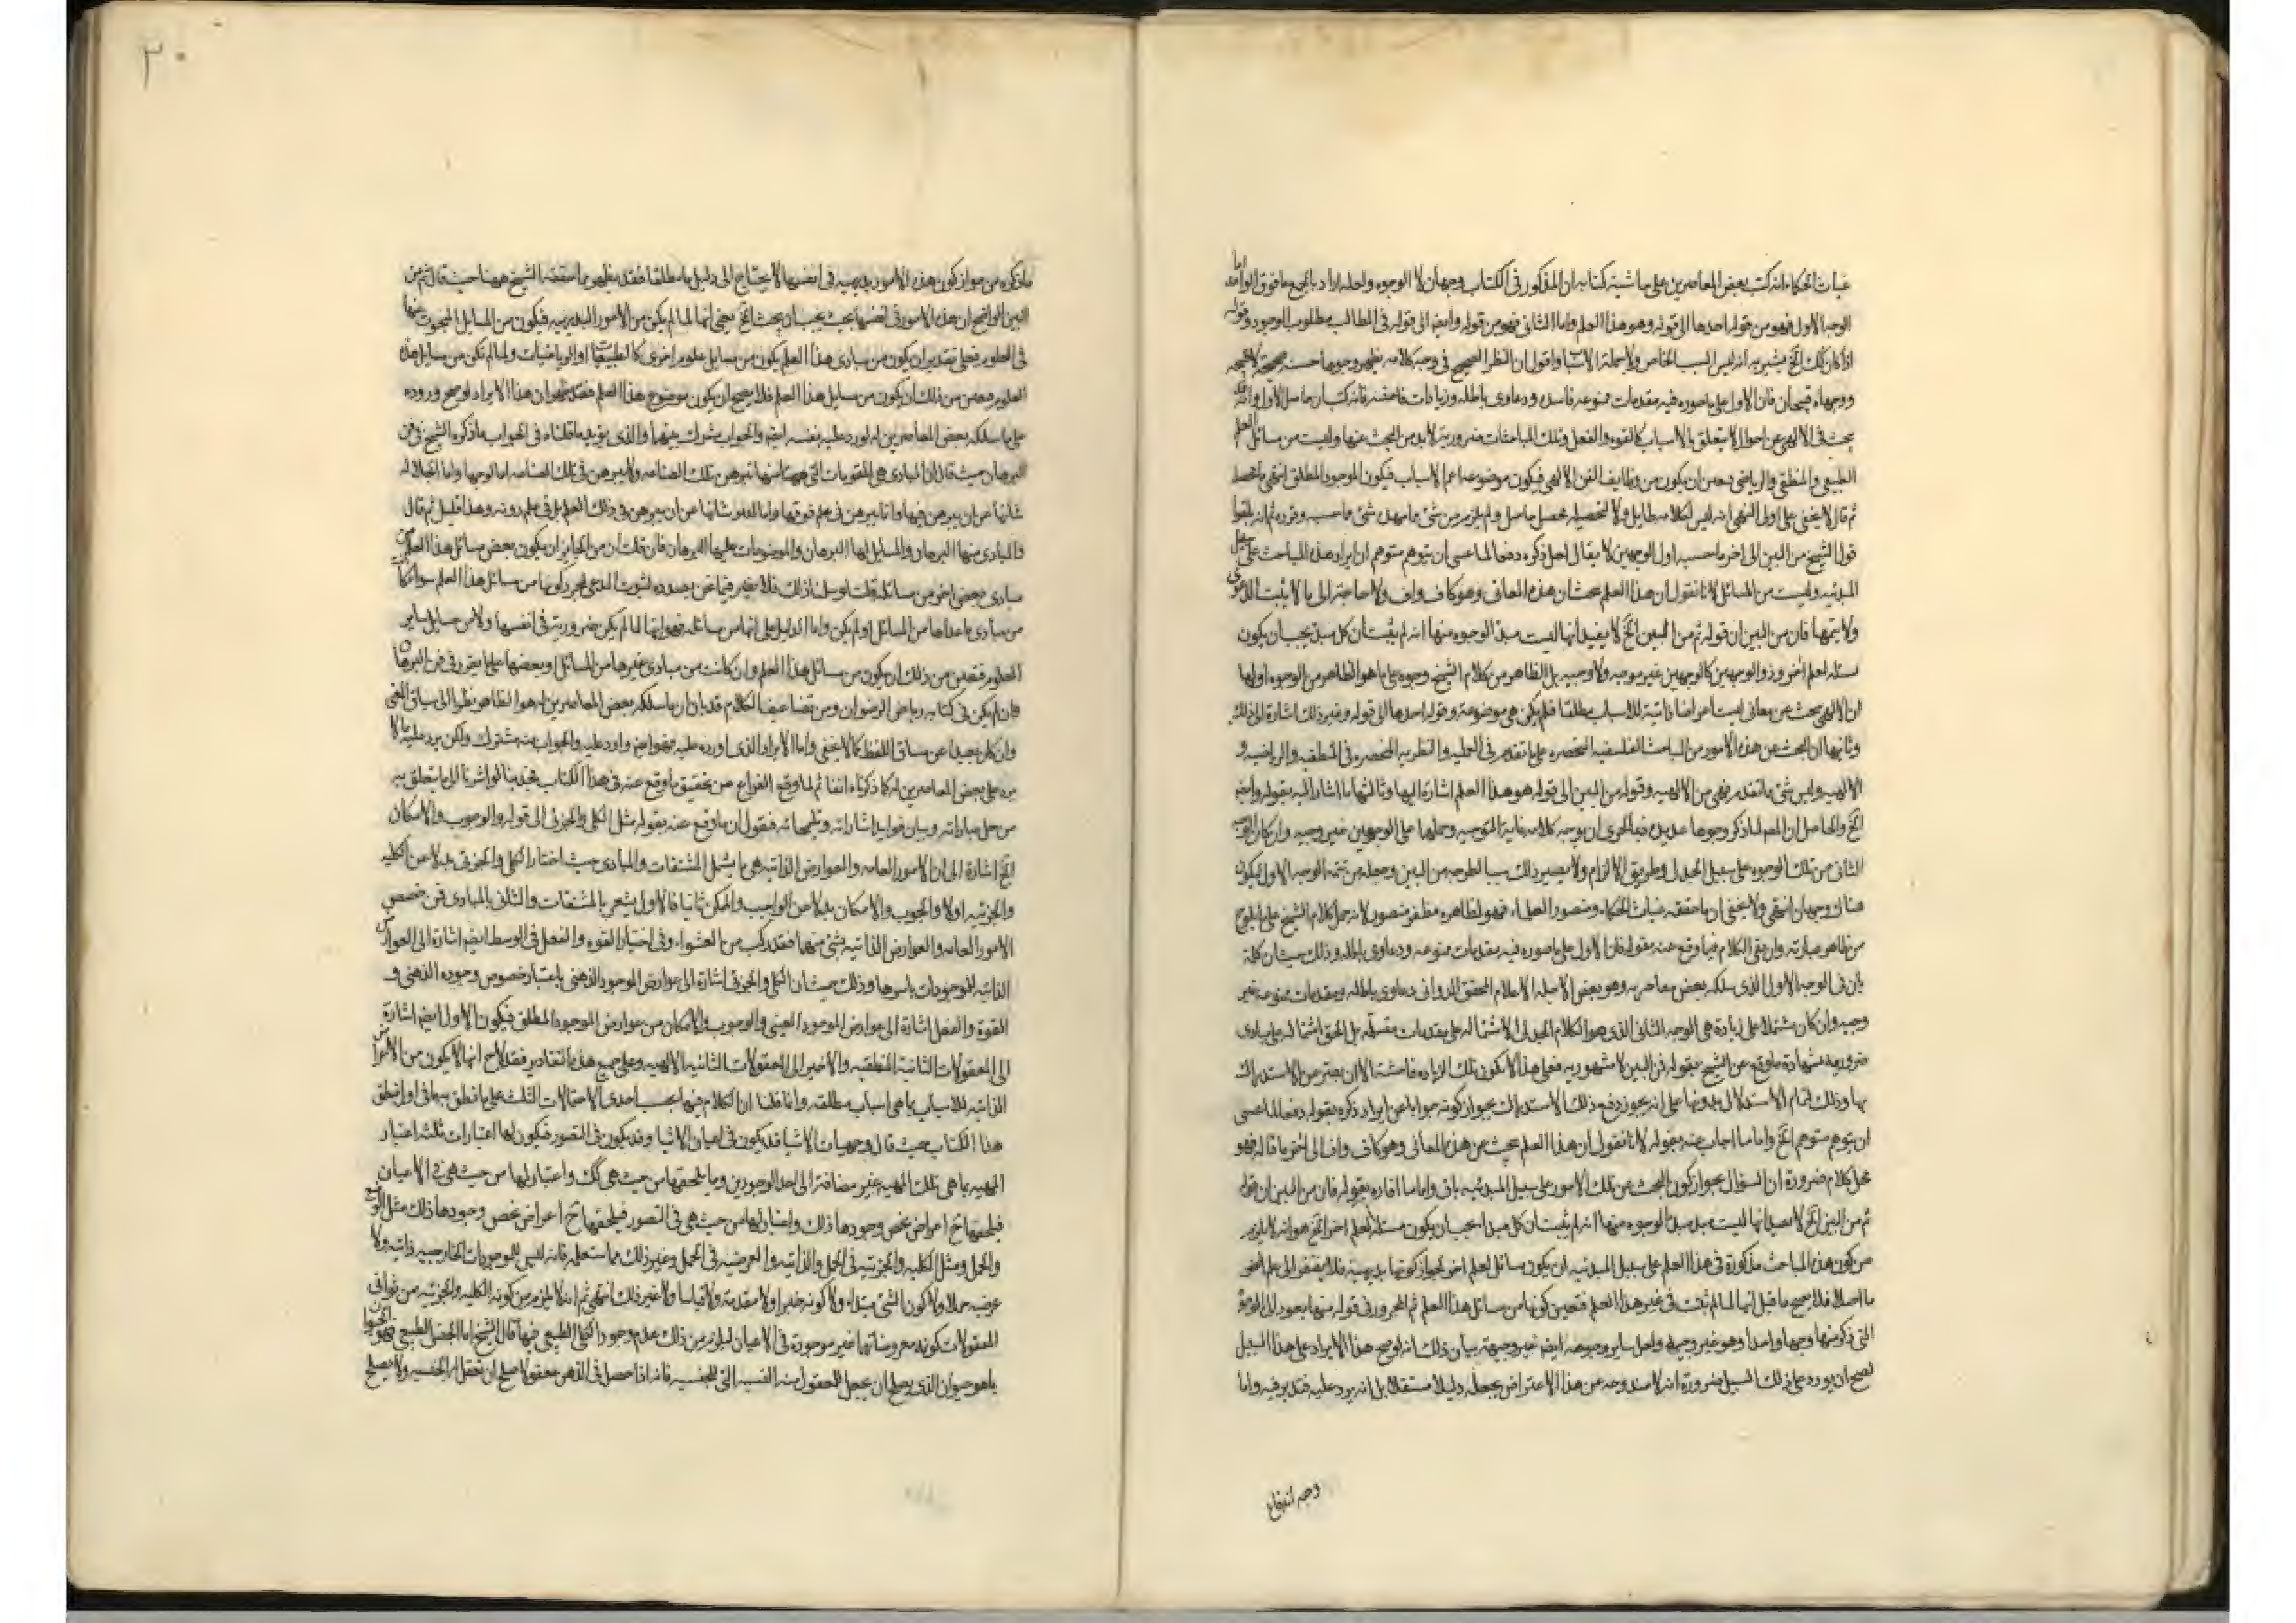 غياث الحكماء انه كتب بعض المعاصرين على حاشية كتابه ان المذكور فى الكتاب وجهان لا الوجوه ولعله اراد بالجمع ما فوق الواحد اما
الوجه الاول فهو من قوله احدها الى قوله وهو هذا العلم واما الثانى فهو من قوله وايضا الى قوله فى المطالب مطلوب الوجود وقوله
اذا كان كك الخ يشير به انه ليس السبب الخاص ولا جملة الاسباب واقول ان النظر الصحيح فى وجه كلامه يظهر وجوها حسنة صحيحة
ووجهاه قبيحان فان الاول على ما صوره فيه مقدمات ممنوعه فاسده ودعاوى باطله وزيادات فاحشه فانه كتب ان حاصل الاول انه
يبحث فى الالهى عن احوال لا يتعلق بالاسباب كالقوه والفعل وتلك المباحثات ضرورية لابد من البحث عنها وليست من مسائل العلم
الطبيعى والمنطقى والرياضى فتعين ان يكون من وظايف الفن الالهى فيكون موضوعه اعم الاسباب فيكون الموجود المطلق انتهى ما تحصله
ثم قال لا يخفى على اولى النهى انه ليس لكلامه طايل ولا لتحصيله محصل حاصل ولم يلزم من شئ ما مهده شئ ما حسبه وقرره ثم انه
قول الشيخ من البين الى اخر ما حسبه اول الوجهين لا يقال لعله ذكره دفعا لما عسى ان يتوهم متوهم ان ايراد هذه المباحث على سبيل
المبدئيه وليست من المسائل لانا نقول ان هذا العلم يبحث عن هذه المعانى وهو كاف واف ولا حاجة الى ما لا يثبت الدعوى
ولا يتمها فان من البين ان قوله ثم من البين الخ لا يفيد انها ليست مبدأ الوجوه منها انه لم يثبت ان كل مبدأ يجب ان يكون
مسئله لعلم اخر وذو الوجهين كالوجهين غير موجه ولا وجيه بل الظاهر من كلام الشيخ وجوه على ما هو الظاهر من الوجوه اولها
ان الالهى يبحث عن معانى ليست اعراضا ذاتية للاسباب مطلقا فلم يكن هى موضوعة وقوله احدها الى قوله وغير ذلك اشارة الى ذلك
وثانيها ان البحث عن هذه الامور من المباحث الفلسفيه المنحصره على ما تقدم فى العمليه والنظريه المنحصره فى المنطقيه والرياضيه و
الالهيه وليس شئ ما تقدم فهى من الالهيه وقوله من البين الى قوله هو هذا العلم اشارة اليها وثالثها ما اشار اليه بقوله وايضا
الخ والحاصل ان المعلم لما ذكر وجوها عديده فبالحرى ان يوجه كلامه غاية التوجيه وحملها على الوجهين غير وجيه وان كان الوجه
الثانى من تلك الوجوه على سبيل الجدل وطريق الالزام ولا يصير ذلك سببا لطرحه من البين وجعله من تتمة الوجه الاول ليكون
هناك وجهان انتهى ولا يخفى ان ما حققه غياث الحكماء ومنصور العلماء فهو لظاهره مظفر منصور لانه حمل كلام الشيخ على ما يلوح
من ظاهر عبارته وان بقى الكلام فيما وقع عنه بقوله فان الاول على ما صوره فيه مقدمات ممنوعه ودعاوى باطله وذلك حيث ان كلمة
بان فى الوجه الاول الذى سلكه بعض معاصريه وهو بعض الاجله الاعلام المحقق الدوانى دعاوى باطله ومقدمات ممنوعه غير
وجيه وان كان مشتملا على زيادة هى الوجه الثانى الذى هو الكلام الجدلى لاشتماله على مقدمات مسلمه بل الحق اشتماله على مبادى
ضروريه بشهادة ما وقع عن الشيخ بقوله فمن البين لا مشهوريه فعلى هذا لا يكون تلك الزياده فاحشة الا ان يعتبر من الاستدراك
بها وذلك لتمام الاستدلال بدونها على انه يجوز دفع ذلك الاستدراك بجواز كونه جوابا عن ايراد ذكره بقوله دفعا لما عسى
ان يتوهم متوهم الخ واما ما اجاب عنه بقوله لانا نقول ان هذا العلم يبحث عن هذه المعانى وهو كاف واف الى اخر ما قاله فهو
محل كلام ضرورة ان السؤال بجواز كون البحث عن تلك الامور على سبيل المبدئيه باق واما ما افاده بقوله فان من البين ان قوله
ثم من البين الخ لا يفيد انها ليست مبدأ الوجوه منها انه لم يثبت ان كل مبدا يجب ان يكون مسئلة لعلم اخر الخ هو انه لا يلزم
من كون هذه المباحث مذكورة فى هذا العلم على سبيل المبدئيه ان يكون مسائل لعلم اخر لجواز كونها بديهية فلا يفتقر الى علم اخر
ما اصلا فلا يصح ما قيل انها لما لم تثبت فى غير هذا العلم فتعين كونها من مسائل هذا العلم ثم المجرور فى قوله منها يعود الى الوجوه
التى ذكر منها وجها واحدا وهو غير وجيه ولعل ساير وجوهه ايضا غير وجيهة بيان ذلك انه لو صح هذا الايراد على هذا السبيل
لصح ان يورده على ذلك السبيل ضرورة انه لا وجه عن هذا الاعتراض بجعله دليلا مستقلا بل انه يرد عليه فتدبر فيه واما
وجه اندفاع
٣٠
ما ذكره من جواز كون هذه الامور بديهيه فى انفسها لا يحتاج الى دليل ما مطلقا فقد يظهر مما حققه الشيخ ههنا حيث قال ثم من
البين الواضح ان هذه الامور فى انفسها بحيث يجب ان يبحث الخ يعنى انها لما لم يكن من الامور البديهيه فيكون من المسايل المبحوث عنها
فى العلوم فعلى تقدير ان يكون من مبادى هذا العلم يكون من مسايل علوم اخرى كالطبيعيات او الرياضيات ولما لم تكن من مسايل هذه
العلوم فتعين من ذلك ان يكون من مسايل هذا العلم فلا يصح ان يكون موضوع هذا العلم فقد ظهر ان هذا الايراد لو صح وروده
على ما سلكه بعض المعاصرين له لورد عليه نفسه ايضا والجواب مشترك بينهما والذى يؤيد ما قلناه فى الجواب ما ذكره الشيخ فى فن
البرهان حيث قال ان المبادى هى المقومات التى منها تبرهن تلك الصناعه ولا تبرهن فى تلك الصناعه اما لوضوحها واما لجلاله
شانها عن ان يبرهن فيها وانما يبرهن فى علم فوقها واما لدنو شانها عن ان يبرهن فى ذلك العلم بل فى علم دونه وهذا قليل ثم قال
فالمبادى منها البرهان والمسايل لها البرهان والموضوعات عليها البرهان فان قلت ان من الجايز ان يكون بعض مسائل هذا العلم من
مبادى بعض اخر من مسائله قلت لو سلم ذلك فلا يضير فيما نحن بصدده لثبوت المدعى بمجرد كونها من مسائل هذا العلم سواء كانت
من مبادى ما عداها من المسائل او لم يكن واما الدليل على انها من مسائله فهو انها لما لم يكن ضرورية فى انفسها ولا من مسايل ساير
العلوم فتعين من ذلك ان يكون من مسائل هذا العلم وان كانت من مبادى غيرها من المسائل وبعضها على ما تقرر فى فن البرهان
فان لم يكن فى كتابه رياض الرضوان ومن تضاعيف الكلام قد بان ان ما سلكه بعض المعاصرين له هو الظاهر نظرا الى سياق المعنى
وان كان بعيدا عن سياق اللفظ كما لا يخفى واما الايراد الذى اورده عليه فهو ايضا وارد عليه والجواب عنه مشترك ولكن يرد عليه ما لا
يرد على بعض المعاصرين له كما ذكرناه انفا ثم لما وقع الفراغ عن تحقيق ما وقع عنه فى هذا الكتاب فحرى بنا لو اشرنا الى ما يتعلق به
من حل عباراته وبيان فوايد اشاراته وتلميحاته فنقول ان ما وقع عنه بقوله مثل الكلى والجزئى الى قوله والوجوب والامكان
الخ اشارة الى ان الامور العامه والعوارض الذاتيه هى ما يشمل المشتقات والمبادى حيث اختار الكلى والجزئى بدلا عن الكليه
والجزئيه اولا والوجوب والامكان بدلا عن الواجب والممكن ثانيا فالاول يشعر بالمشتقات والثانى بالمبادى فمن خصص
الامور العامه والعوارض الذاتيه بشئ منهما فقد ركب متن العشواء وفى اختيار القوه والفعل فى الوسط ايضا اشارة الى العوارض
الذاتيه للموجودات باسرها وذلك حيث ان الكلى والجزئى اشارة الى عوارض الموجود الذهنى باعتبار خصوص وجوده الذهنى و
القوة والفعل اشارة الى عوارض الموجود العينى والوجوب والامكان من عوارض الموجود المطلق فيكون الاول ايضا اشارة
الى المعقولات الثانية المنطقيه والاخير الى المعقولات الثانيه الالهيه وعلى جميع هذه التقادير فقد لاح انها لا يكون من الاعراض
الذاتيه للاسباب بما هى اسباب مطلقه وانما قلنا ان الكلام فيها بحسب احدى الاحتمالات الثلث على ما نطق به ما فى اول منطق
هذا الكتاب حيث قال وجهيات الاشيا قد يكون فى اعيان الاشيا وقد يكون فى التصور فيكون لها اعتبارات ثلث اعتبار
المهيه بما هى تلك المهيه غير مضافة الى احد الوجودين وما يلحقها من حيث هى كك واعتبار لها من حيث هى فى الاعيان
فيلحقها ح اعراض تخص وجودها ذلك واعتبار لها من حيث هى فى التصور فيلحقها ح اعراض تخص وجودها ذلك مثل الوضع
والحمل ومثل الكليه والجزئيه فى الحمل والذاتيه والعرضيه فى الحمل وغير ذلك مما ستعلمه فانه ليس للموجودات الخارجيه ذاتيه ولا
عرضيه حملا ولا كون الشئ مبتداء ولا كونه خبرا ولا مقدمة ولا قياسا ولا غير ذلك انتهى ثم انه لا يلزم من كونه الكليه والجزئيه من ثوانى
المعقولات كونه معروضاتها غير موجودة فى الاعيان ليلزم من ذلك عدم وجود الكلى الطبيعى فيها قال الشيخ اما الجنس الطبيعى فهو الحيوان
بما هو حيوان الذى يصلح ان يجعل للمعقول منه النسبة التى للجنسيه فانه اذا حصل فى الذهن معقولا صلح ان تعقل له الجنسيه ولا يصلح